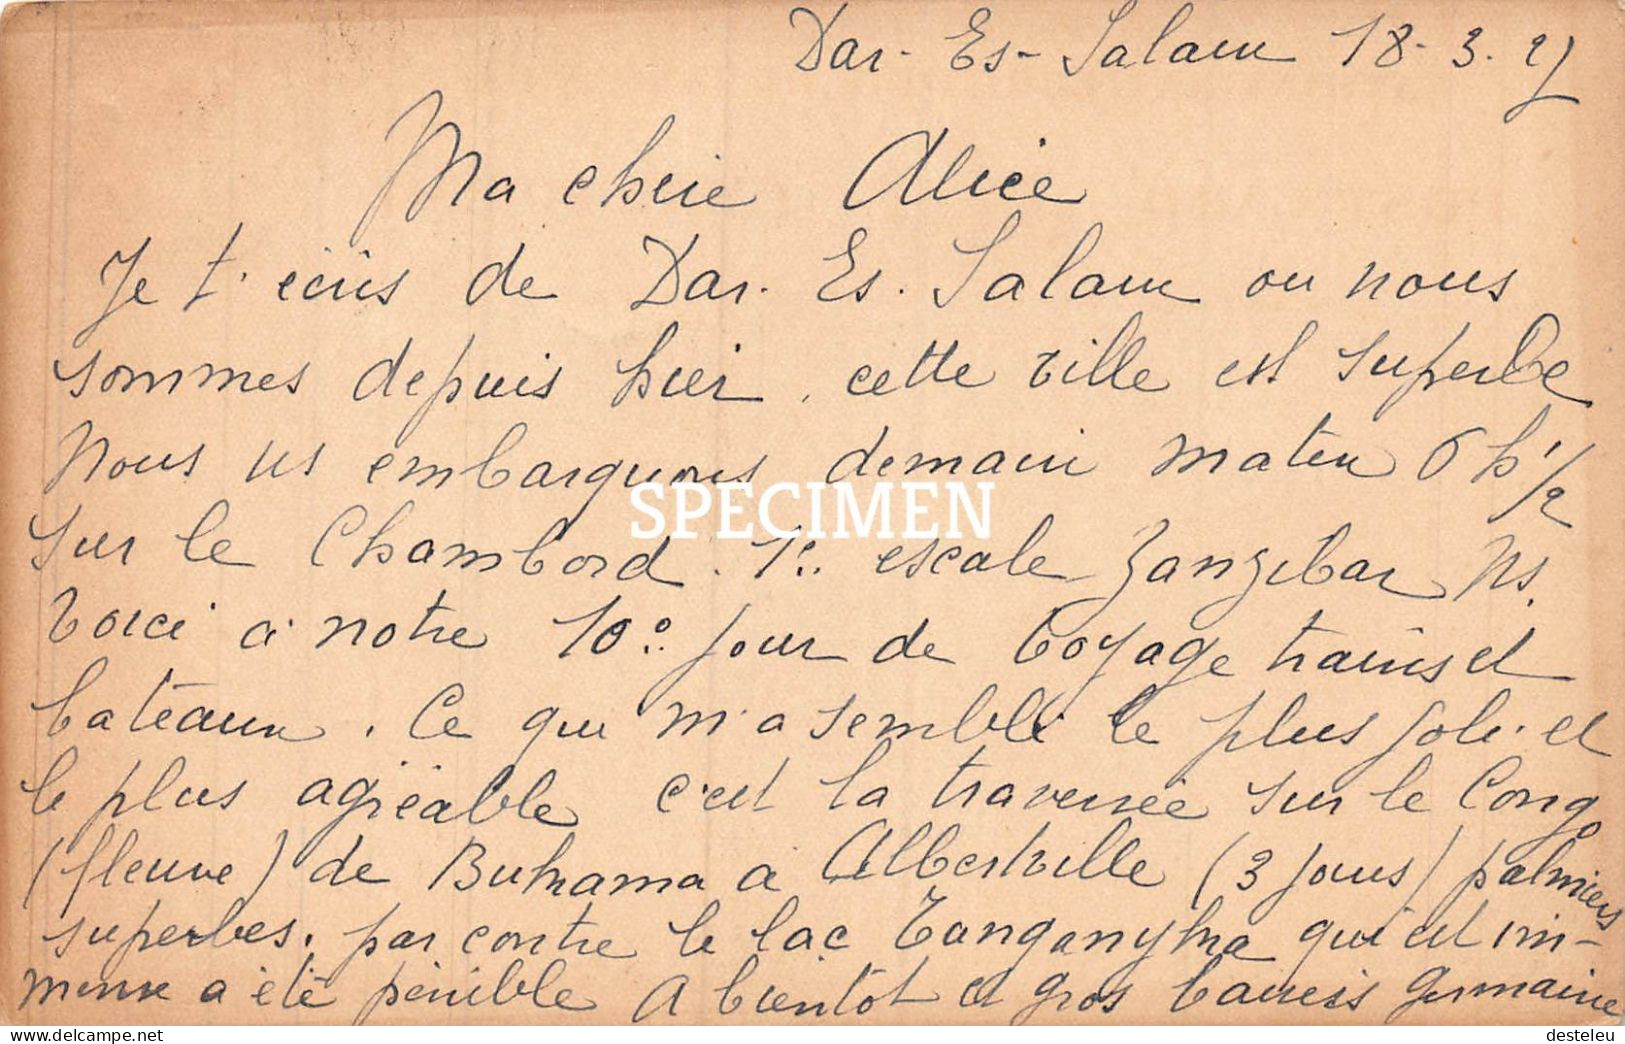 Dar-Es-Salam 18-3.27
Ma chère Alice
Je t'écris de Dar-Es-Salam ou nous
sommes depuis hier, cette ville est superbe
Nous ns embarquons demain matin 6h 1/2
SPECIMEN
sur le Chambord. 1e escale Zanzibar Ns.
voici à notre 10° jour de voyage trains et
bateaux. Ce qui m'a semblé le plus joli et
le plus agréable c'est la traversée sur le Congo
(fleuve) de Bukama a Albertville (3 jours) palmiers
superbes. par contre le lac Tanganyka qui est im-
mense a été pénible A bientôt et gros baisers Germaine
delcampe.net
desteleu